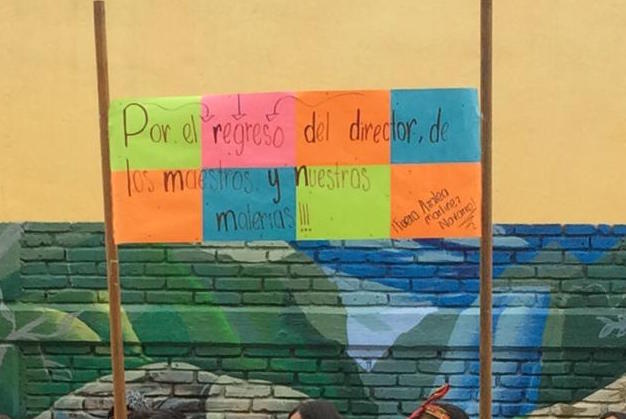 Por el regreso del director, de
los maestros y nuestras
materias!!!
¡Fuera Azalea
martinez
Navarro!